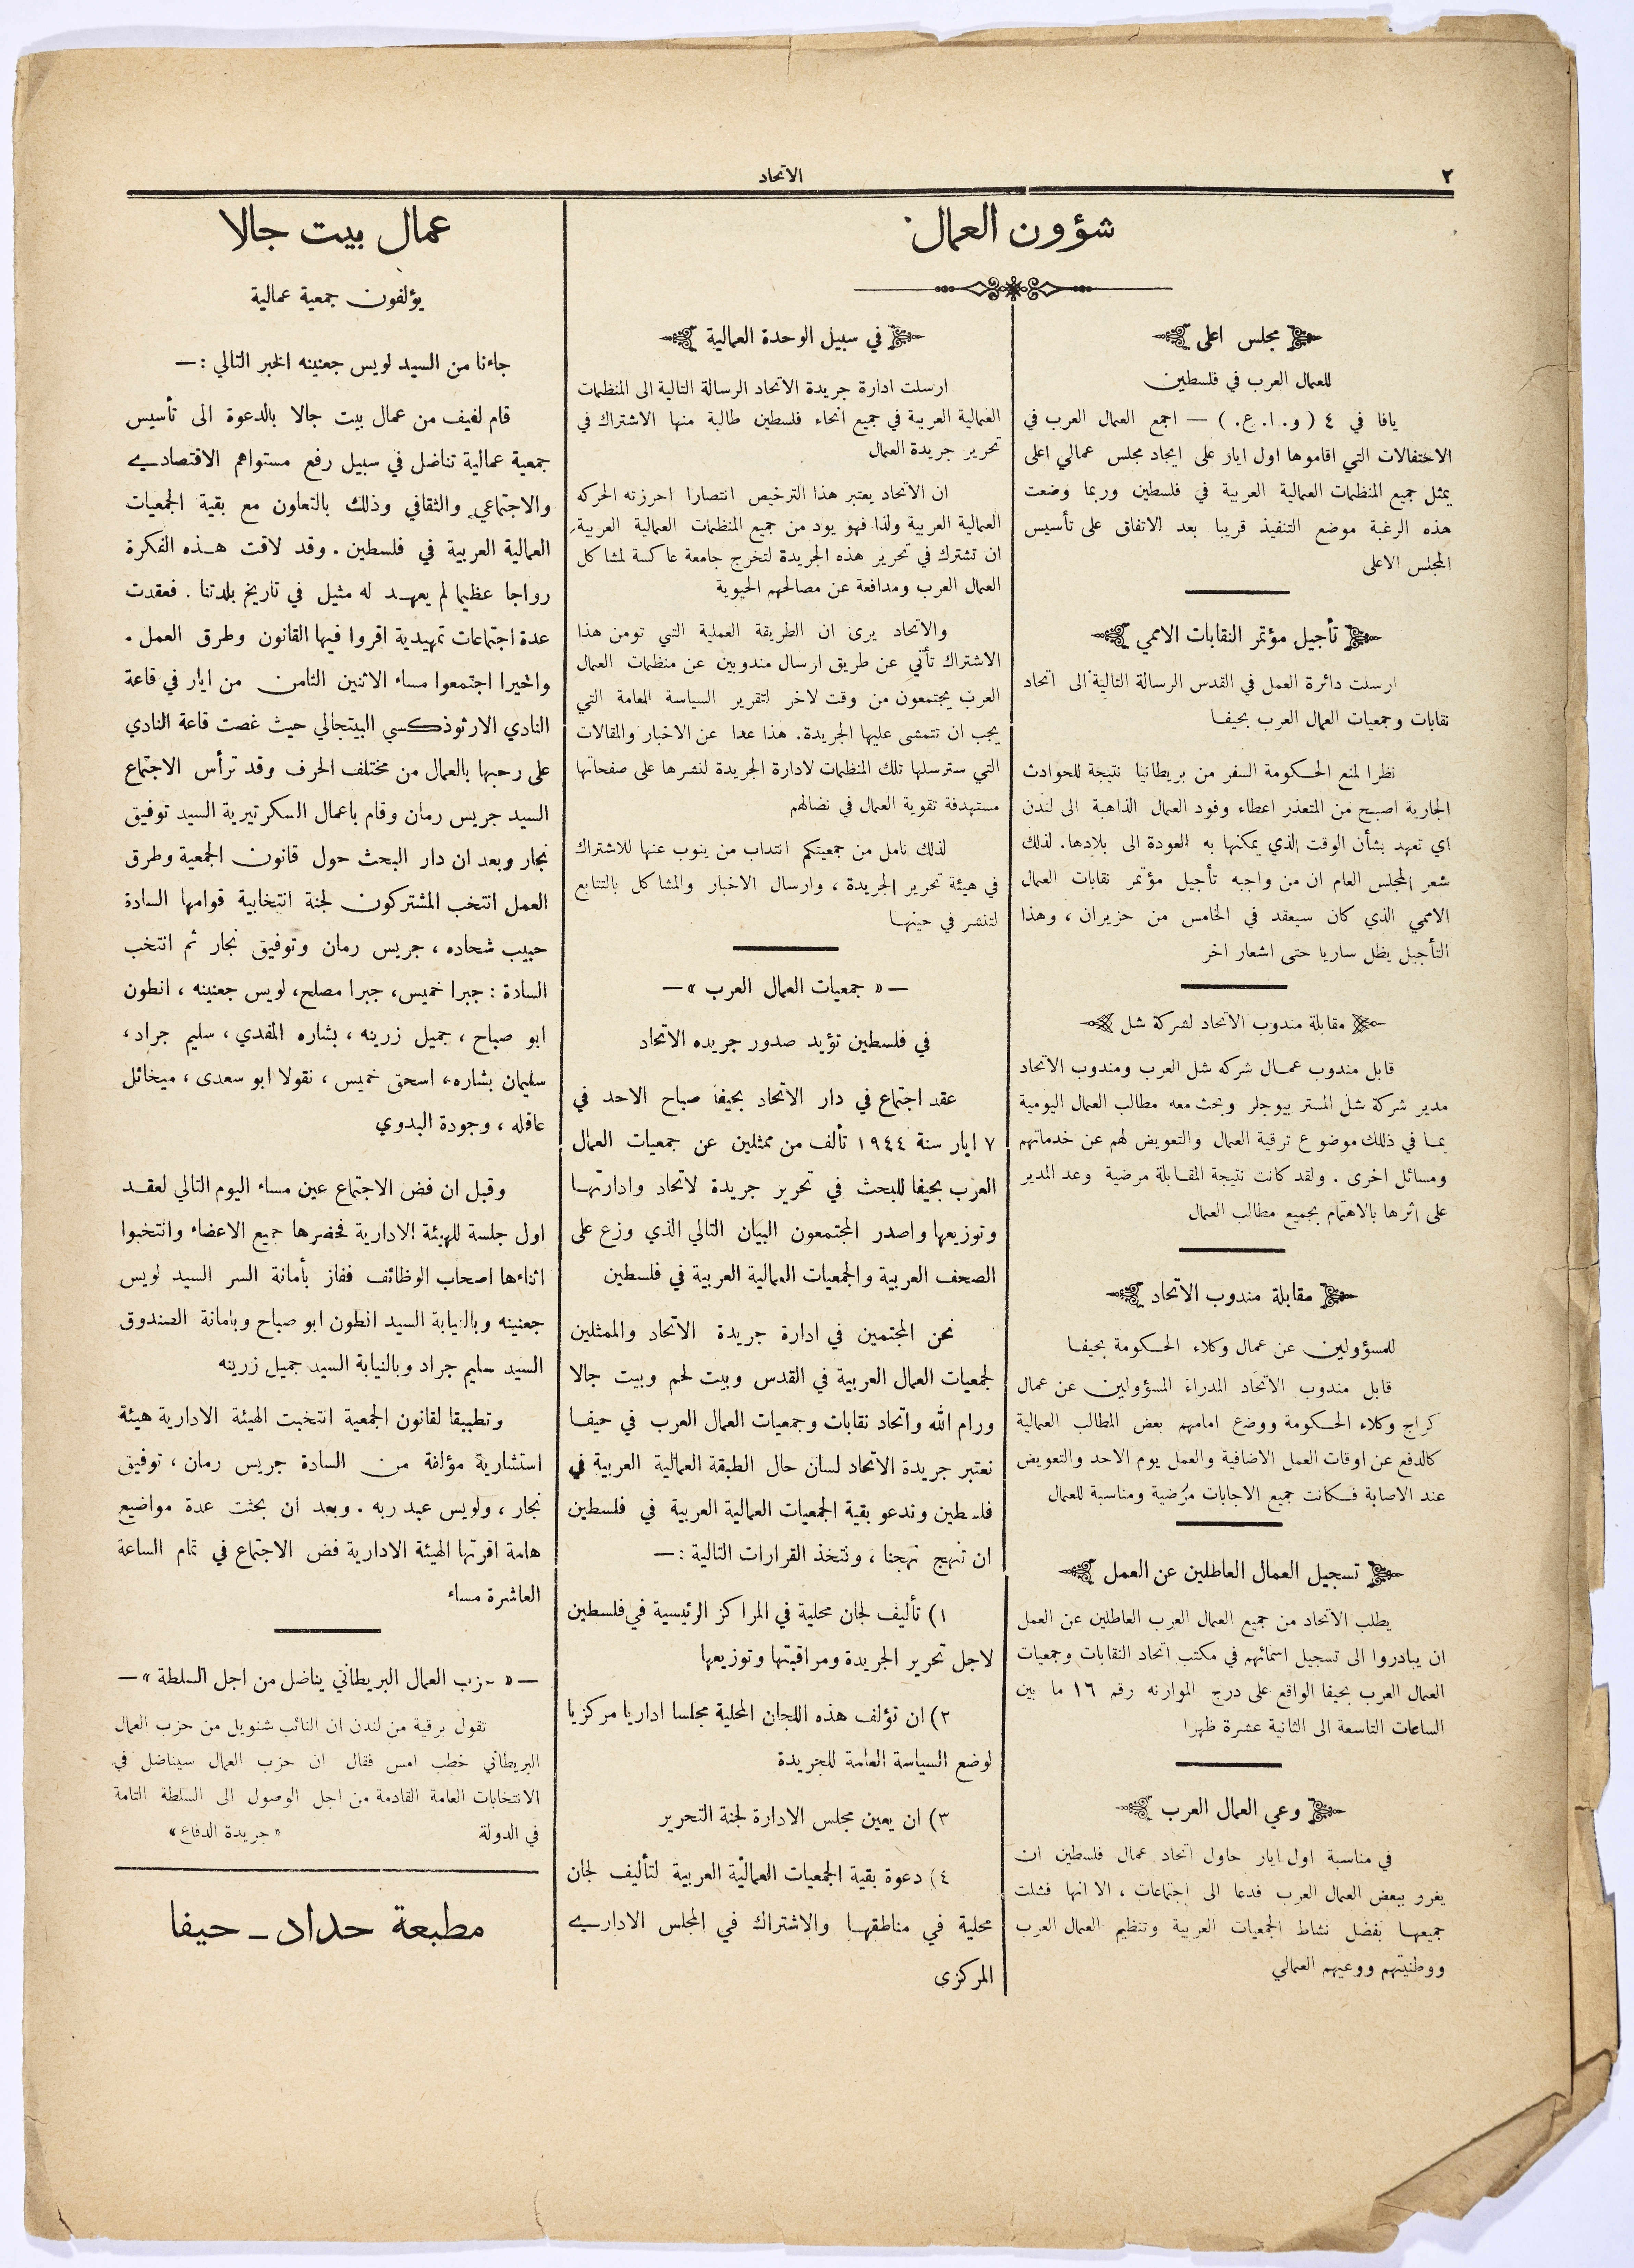 ٢
الاتحاد
شؤون العمال
مجلس اعلى
للعمال العرب في فلسطين
يافا في ٤ ( و. ا. ع. ) — اجمع العمال العرب في
الاحتفالات التي اقاموها اول ايار على ايجاد مجلس عمالي اعلى
يمثل جميع المنظمات العمالية العربية في فلسطين وربما وضعت
هذه الرغبة موضع التنفيذ قريبا بعد الاتفاق على تأسيس
المجلس الاعلى
تأجيل مؤتمر النقابات الاممي
ارسلت دائرة العمل في القدس الرسالة التالية الى اتحاد
نقابات وجمعيات العمال العرب بحيفا
نظرا لمنع الحكومة السفر من بريطانيا نتيجة للحوادث
الجارية اصبح من المتعذر اعطاء وفود العمال الذاهبة الى لندن
اي تعهد بشأن الوقت الذي يمكنها به العودة الى بلادها. لذلك
شعر المجلس العام ان من واجبه تأجيل مؤتمر نقابات العمال
الاممي الذي كان سيعقد في الخامس من حزيران ، وهذا
التأجيل يظل ساريا حتى اشعار اخر
مقابلة مندوب الاتحاد لشركة شل
قابل مندوب عمال شركه شل العرب ومندوب الاتحاد
مدير شركة شل المستر بيوجلر وبحث معه مطالب العمال اليومية
بما في ذلك موضوع ترقية العمال والتعويض لهم عن خدماتهم
ومسائل اخرى . ولقد كانت نتيجة المقابلة مرضية وعد المدير
على اثرها بالاهتمام بجميع مطالب العمال
مقابلة مندوب الاتحاد
للمسؤولين عن عمال وكلاء الحكومة بحيفا
قابل مندوب الاتحاد المدراء المسؤولين عن عمال
كراج وكلاء الحكومة ووضع امامهم بعض المطالب العمالية
كالدفع عن اوقات العمل الاضافية والعمل يوم الاحد والتعويض
عند الاصابة فكانت جميع الاجابات مرضية ومناسبة للعمال
تسجيل العمال العاطلين عن العمل
يطلب الاتحاد من جميع العمال العرب العاطلين عن العمل
ان يبادروا الى تسجيل اسمائهم في مكتب اتحاد النقابات وجمعيات
العمال العرب بحيفا الواقع على درج الموارنه رقم ١٦ ما بين
الساعات التاسعة الى الثانية عشرة ظهرا
وعي العمال العرب
في مناسبة اول ايار حاول اتحاد عمال فلسطين ان
يغرو ببعض العمال العرب فدعا الى اجتماعات ، الا انها فشلت
جميعها بفضل نشاط الجمعيات العربية وتنظيم العمال العرب
ووطنيتهم ووعيهم العمالي
في سبيل الوحدة العمالية
ارسلت ادارة جريدة الاتحاد الرسالة التالية الى المنظمات
العمالية العربية في جميع انحاء فلسطين طالبة منها الاشتراك في
تحرير جريدة العمال
ان الاتحاد يعتبر هذا الترخيص انتصارا احرزته الحركه
العمالية العربية ولذا فهو يود من جميع المنظمات العمالية العربية
ان تشترك في تحرير هذه الجريدة لتخرج جامعة عاكسة لمشاكل
العمال العرب ومدافعة عن مصالحهم الحيوية
والاتحاد يرى ان الطريقة العملية التي تومن هذا
الاشتراك تأتي عن طريق ارسال مندوبين عن منظمات العمال
العرب يجتمعون من وقت لاخر لتقرير السياسة العامة التي
يجب ان تتمشى عليها الجريدة. هذا عدا عن الاخبار والمقالات
التي سترسلها تلك المنظمات لادارة الجريدة لنشرها على صفحاتها
مستهدفة تقوية العمال في نضالهم
لذلك نامل من جمعيتكم انتداب من ينوب عنها للاشتراك
في هيئة تحرير الجريدة ، وارسال الاخبار والمشاكل بالتتابع
لتنشر في حينها
— « جمعيات العمال العرب » —
في فلسطين تؤيد صدور جريده الاتحاد
عقد اجتماع في دار الاتحاد بحيفا صباح الاحد في
٧ ايار سنة ١٩٤٤ تألف من ممثلين عن جمعيات العمال
العرب بحيفا للبحث في تحرير جريدة لاتحاد وادارتها
وتوزيعها واصدر المجتمعون البيان التالي الذي وزع على
الصحف العربية والجمعيات العمالية العربية في فلسطين
نحن المجتمين في ادارة جريدة الاتحاد والممثلين
لجمعيات العمال العربية في القدس وبيت لحم وبيت جالا
ورام الله واتحاد نقابات وجمعيات العمال العرب في حيفا
نعتبر جريدة الاتحاد لسان حال الطبقة العمالية العربية في
فلسطين وندعو بقية الجمعيات العمالية العربية في فلسطين
ان تنهج نهجنا ، ونتخذ القرارات التالية : —
١) تأليف لجان محلية في المراكز الرئيسية في فلسطين
لاجل تحرير الجريدة ومراقبتها وتوزيعها
٢) ان تؤلف هذه اللجان المحلية مجلسا اداريا مركزيا
لوضع السياسة العامة للجريدة
٣) ان يعين مجلس الادارة لجنة التحرير
٤) دعوة بقية الجمعيات العمالية العربية لتأليف لجان
محلية في مناطقها والاشتراك في المجلس الاداري
المركزى
عمال بيت جالا
يؤلفون جمعية عمالية
جاءنا من السيد لويس جعنينه الخبر التالي : —
قام لفيف من عمال بيت جالا بالدعوة الى تأسيس
جمعية عمالية تناضل في سبيل رفع مستواهم الاقتصادي
والاجتماعي والثقافي وذلك بالتعاون مع بقية الجمعيات
العمالية العربية في فلسطين . وقد لاقت هذه الفكرة
رواجا عظيما لم يعهد له مثيل في تاريخ بلدتنا . فعقدت
عدة اجتماعات تمهيدية اقروا فيها القانون وطرق العمل .
واخيرا اجتمعوا مساء الاثنين الثامن من ايار في قاعة
النادي الارثوذكسي البيتجالي حيث غصت قاعة النادي
على رحبها بالعمال من مختلف الحرف وقد ترأس الاجتماع
السيد جريس رمان وقام باعمال السكرتيرية السيد توفيق
نجار وبعد ان دار البحث حول قانون الجمعية وطرق
العمل انتخب المشتركون لجنة انتخابية قوامها السادة
حبيب شحاده ، جريس رمان وتوفيق نجار ثم انتخب
السادة : جبرا خميس، جبرا مصلح، لويس جعنينه ، انطون
ابو صباح ، جميل زرينه ، بشاره المفدي ، سليم جراد ،
سليمان بشاره، اسحق خميس ، نقولا ابو سعدى ، ميخائل
عاقله ، وجودة البدوي
وقبل ان فض الاجتماع عين مساء اليوم التالي لعقد
اول جلسة للهيئة الادارية فحضرها جميع الاعضاء وانتخبوا
اثناءها اصحاب الوظائف ففاز بأمانة السر السيد لويس
جعنينه وبالنيابة السيد انطون ابو صباح وبامانة الصندوق
السيد سليم جراد وبالنيابة السيد جميل زرينه
وتطبيقا لقانون الجمعية انتخبت الهيئة الادارية هيئة
استشارية مؤلفة من السادة جريس رمان ، توفيق
نجار ، ولويس عبد ربه . وبعد ان بحثت عدة مواضيع
هامة اقرتها الهيئة الادارية فض الاجتماع في تمام الساعة
العاشرة مساء
— « حزب العمال البريطاني يناضل من اجل السلطة » —
تقول برقية من لندن ان النائب شنويل من حزب العمال
البريطاني خطب امس فقال ان حزب العمال سيناضل في
الانتخابات العامة القادمة من اجل الوصول الى السلطة التامة
في الدولة « جريدة الدفاع »
مطبعة حداد - حيفا